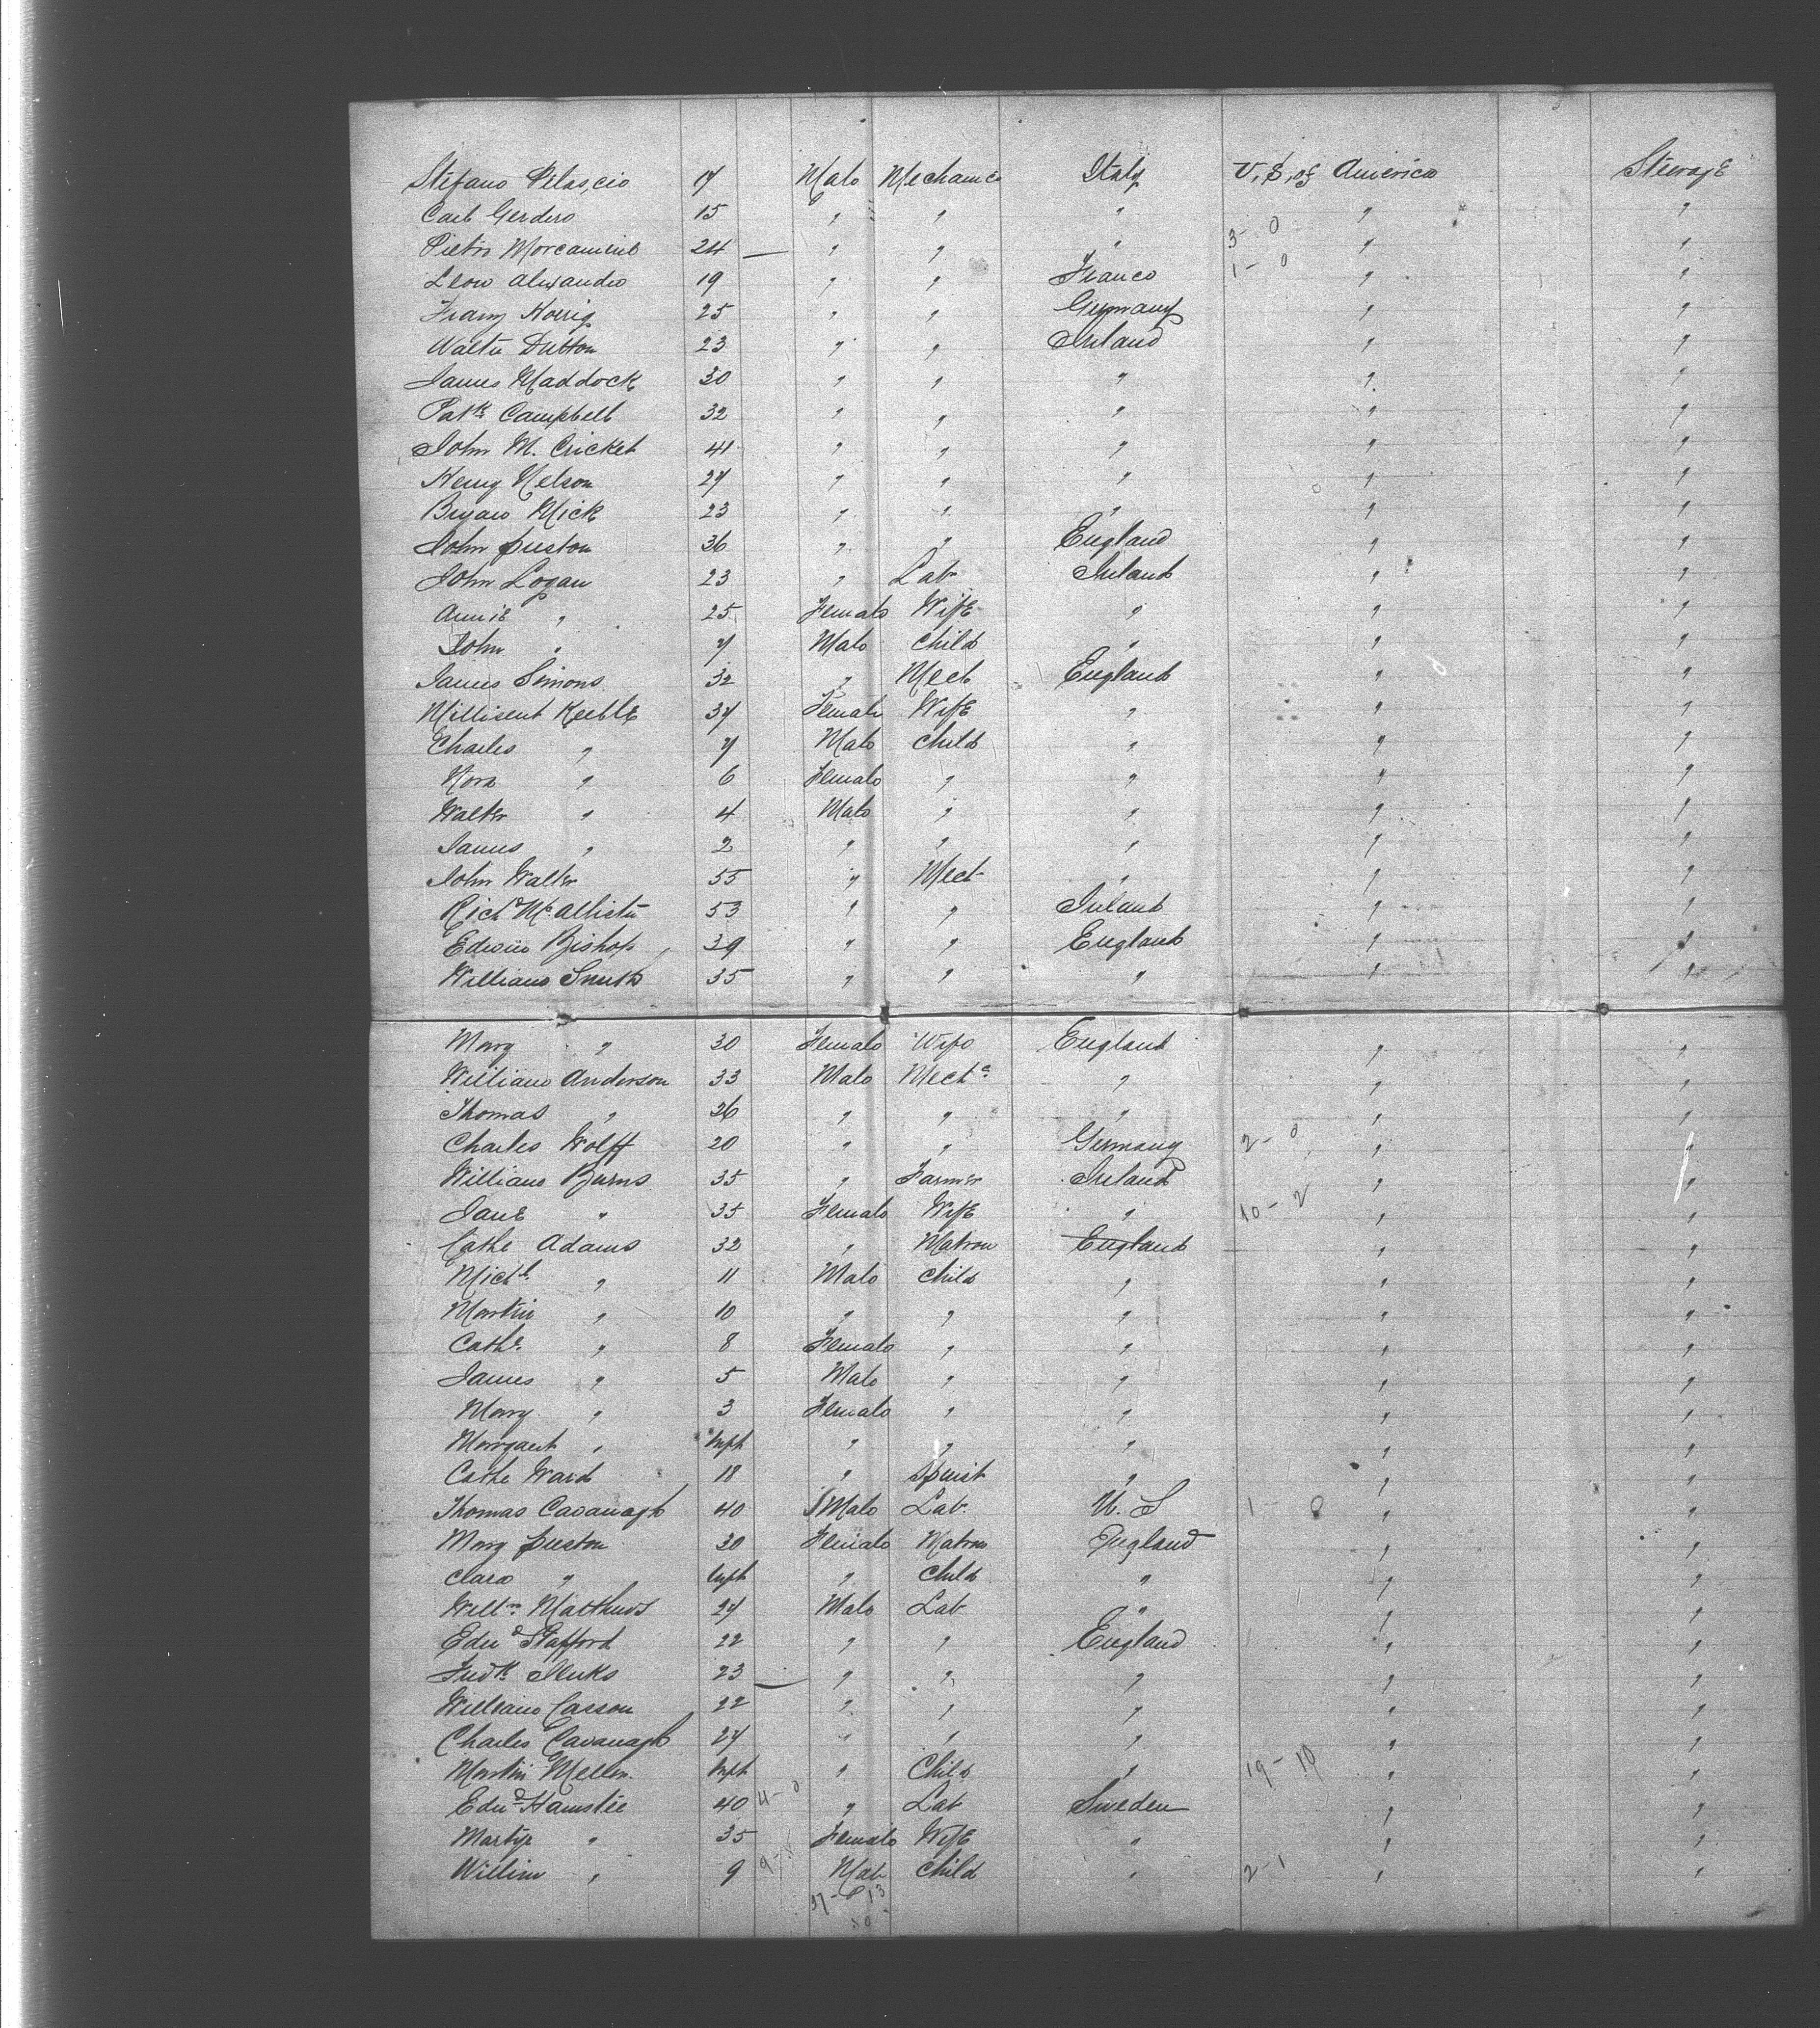 Stefano Pilascio 17 Male Mechanic Italy U,S, of America Steerage
Carl Gerdero 15 " " " " "
Pietro Morcamine 24 — " " " 3- 0 " "
Leon Alexandre 19 " " France 1- 0 " "
Franz Hoerig 25 " " Germany " "
Walter Dutton 23 " " Ireland " "
James Maddock 30 " " " " "
Patk Campbell 32 " " " " "
John M. Cricket 41 " " " " "
Henry Nelson 27 " " " 0 " "
Bryan Mick 23 " " " " "
John Preston 36 " " England " "
John Logan 23 " Lab Ireland " "
Annie " 25 Female Wife " " "
John " 7 Male Child " " "
James Simons 32 " Mech England " "
Millisent Keeble 37 Female Wife " " "
Charles " 7 Male Child " " "
Nora " 6 Female " " " "
Walter " 4 Male " " " "
James " 2 " " " " "
John Walter 55 " Mech " " "
Richd McAllister 53 " " Ireland " "
Edwin Bishop 39 " " England " "
William Smith 35 " " " " "
Mary " 30 Female Wife England " "
William Anderson 33 Male Mechc " " "
Thomas " 26 " " " " "
Charles Wolff 20 " " Germany 2- 0 " "
William Burns 35 " Farmer Ireland " "
Jane " 35 Female Wife " 10-2 " "
Cathe Adams 32 " Matron England " "
Michl " 11 Male Child " " "
Martin " 10 " " " " "
Cathe " 8 Female " " " "
James " 5 Male " " " "
Mary " 3 Female " " " "
Margaret " Inft " " " " "
Cathe Ward 18 " Spinst " " "
Thomas Cavanagh 40 Male Lab. U. S 1 0 " "
Mary Preston 30 Female Matron England " "
Clara " Inft " Child " " "
Willm Matthews 27 Male Lab " " "
Edwd Stafford 22 " " England " "
Fredk 23 — " " " " "
William Casson 22 " " " " "
Charles Cavanagh 27 " " " " "
Martin Mellon Inft " Child " 19-10 " "
Edwd Hamstee 40 4-0 " Lab Sweden " "
35 Female Wife " " "
William " 9 9-8 Male Child " 2-1 " "
37-13
50